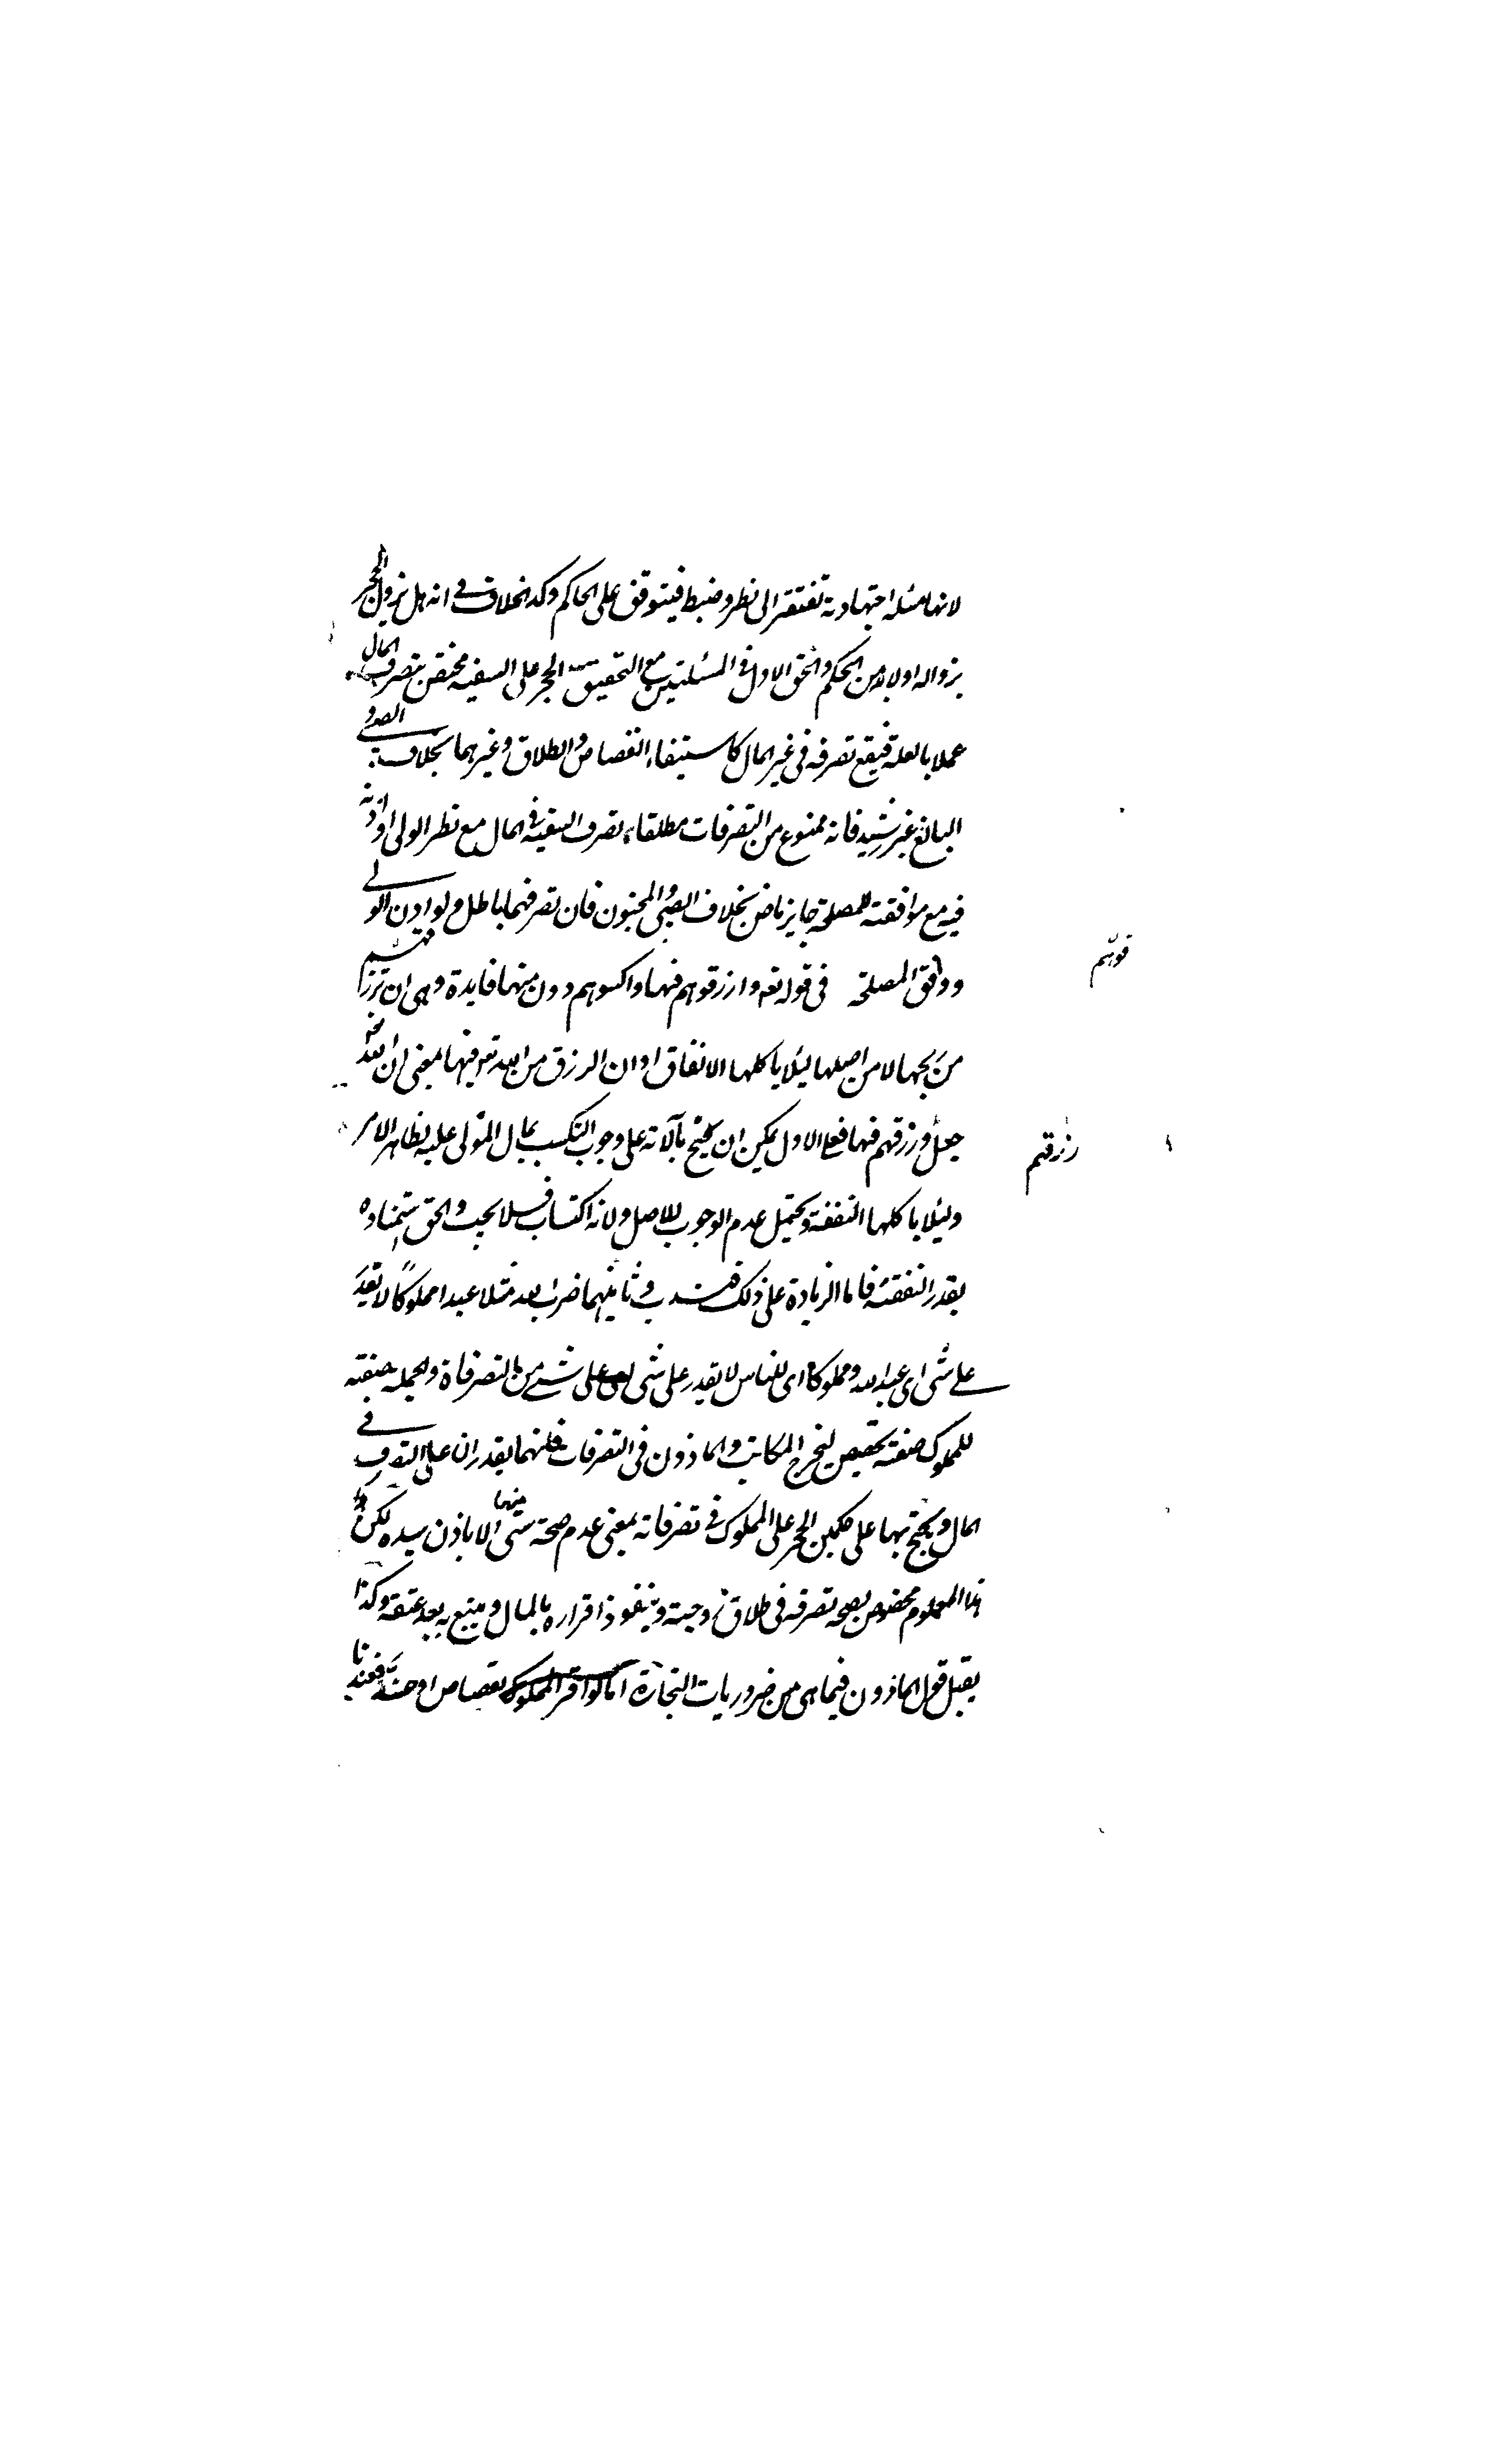 لانها مسئله اجتهادية تفتقر الى نظر وضبط فيتوقف على الحاكم وكذا الخلاف في انه هل يزول الحجر
بزواله او لابد من الحكم والحق الاول في المسئلتين مع التحقيق الحجر على السفيه مختص بتصرف المال
عملا بالعلة فيقع تصرفه في غير المال كاستيفاء القصاص والطلاق وغيرهما بخلاف الصبي
البالغ غير رشيد فانه ممنوع من التصرفات مطلقا تصرف السفيه في المال مع نظر الولى او اذنه
فيه مع موافقته للمصلحة جايز ماض بخلاف الصبي والمجنون فان تصرفهما باطل ولو اذن الولي
ووافق المصلحة في قوله تع وارزقوهم فيها واكسوهم دون منها فايدة وهى ان
قوتهم
من ربحها لا من اصلها ليلا ياكلها الانفاق او ان الرزق من الله تع فيها بمعنى ان الله
جعل رزقهم فيها فعلى الاول يمكن ان يحتج بالآية على وجوب التكسب بمال المولى عليه لظاهر الامر
رزقهم
وليلا ياكلها النفقة ويحتمل عدم الوجوب للاصل ولانه اكتساب فلا يجب والحق استنماده
بقدر النفقة فاما الزيادة على ذلك فندب وثانيهما ضرب الله مثلا عبدا مملوكا لا يقدر
على شى اى عبدالله ومملوكا اى للناس لا يقدر على شى على شى من التصرفاة والجملة صفته
للمملوك صفته تخصيص ليخرج المكاتب والماذون في التصرفات فانهما يقدران على التصرف في
المال ويحتج بها على حكمين الحجر على المملوك في تصرفاته بمعنى عدم صحة شى منها الا باذن سيده لكن
هذا المعلوم مخصوص بصحة تصرفه في طلاق زوجته وبنفوذ اقراره بالمال ويتبع به بعد عتقه وكذا
يقبل قول الماذون فيما هى من ضروريات التجارة اما لو اقر المملوك بقصاص او فعندنا